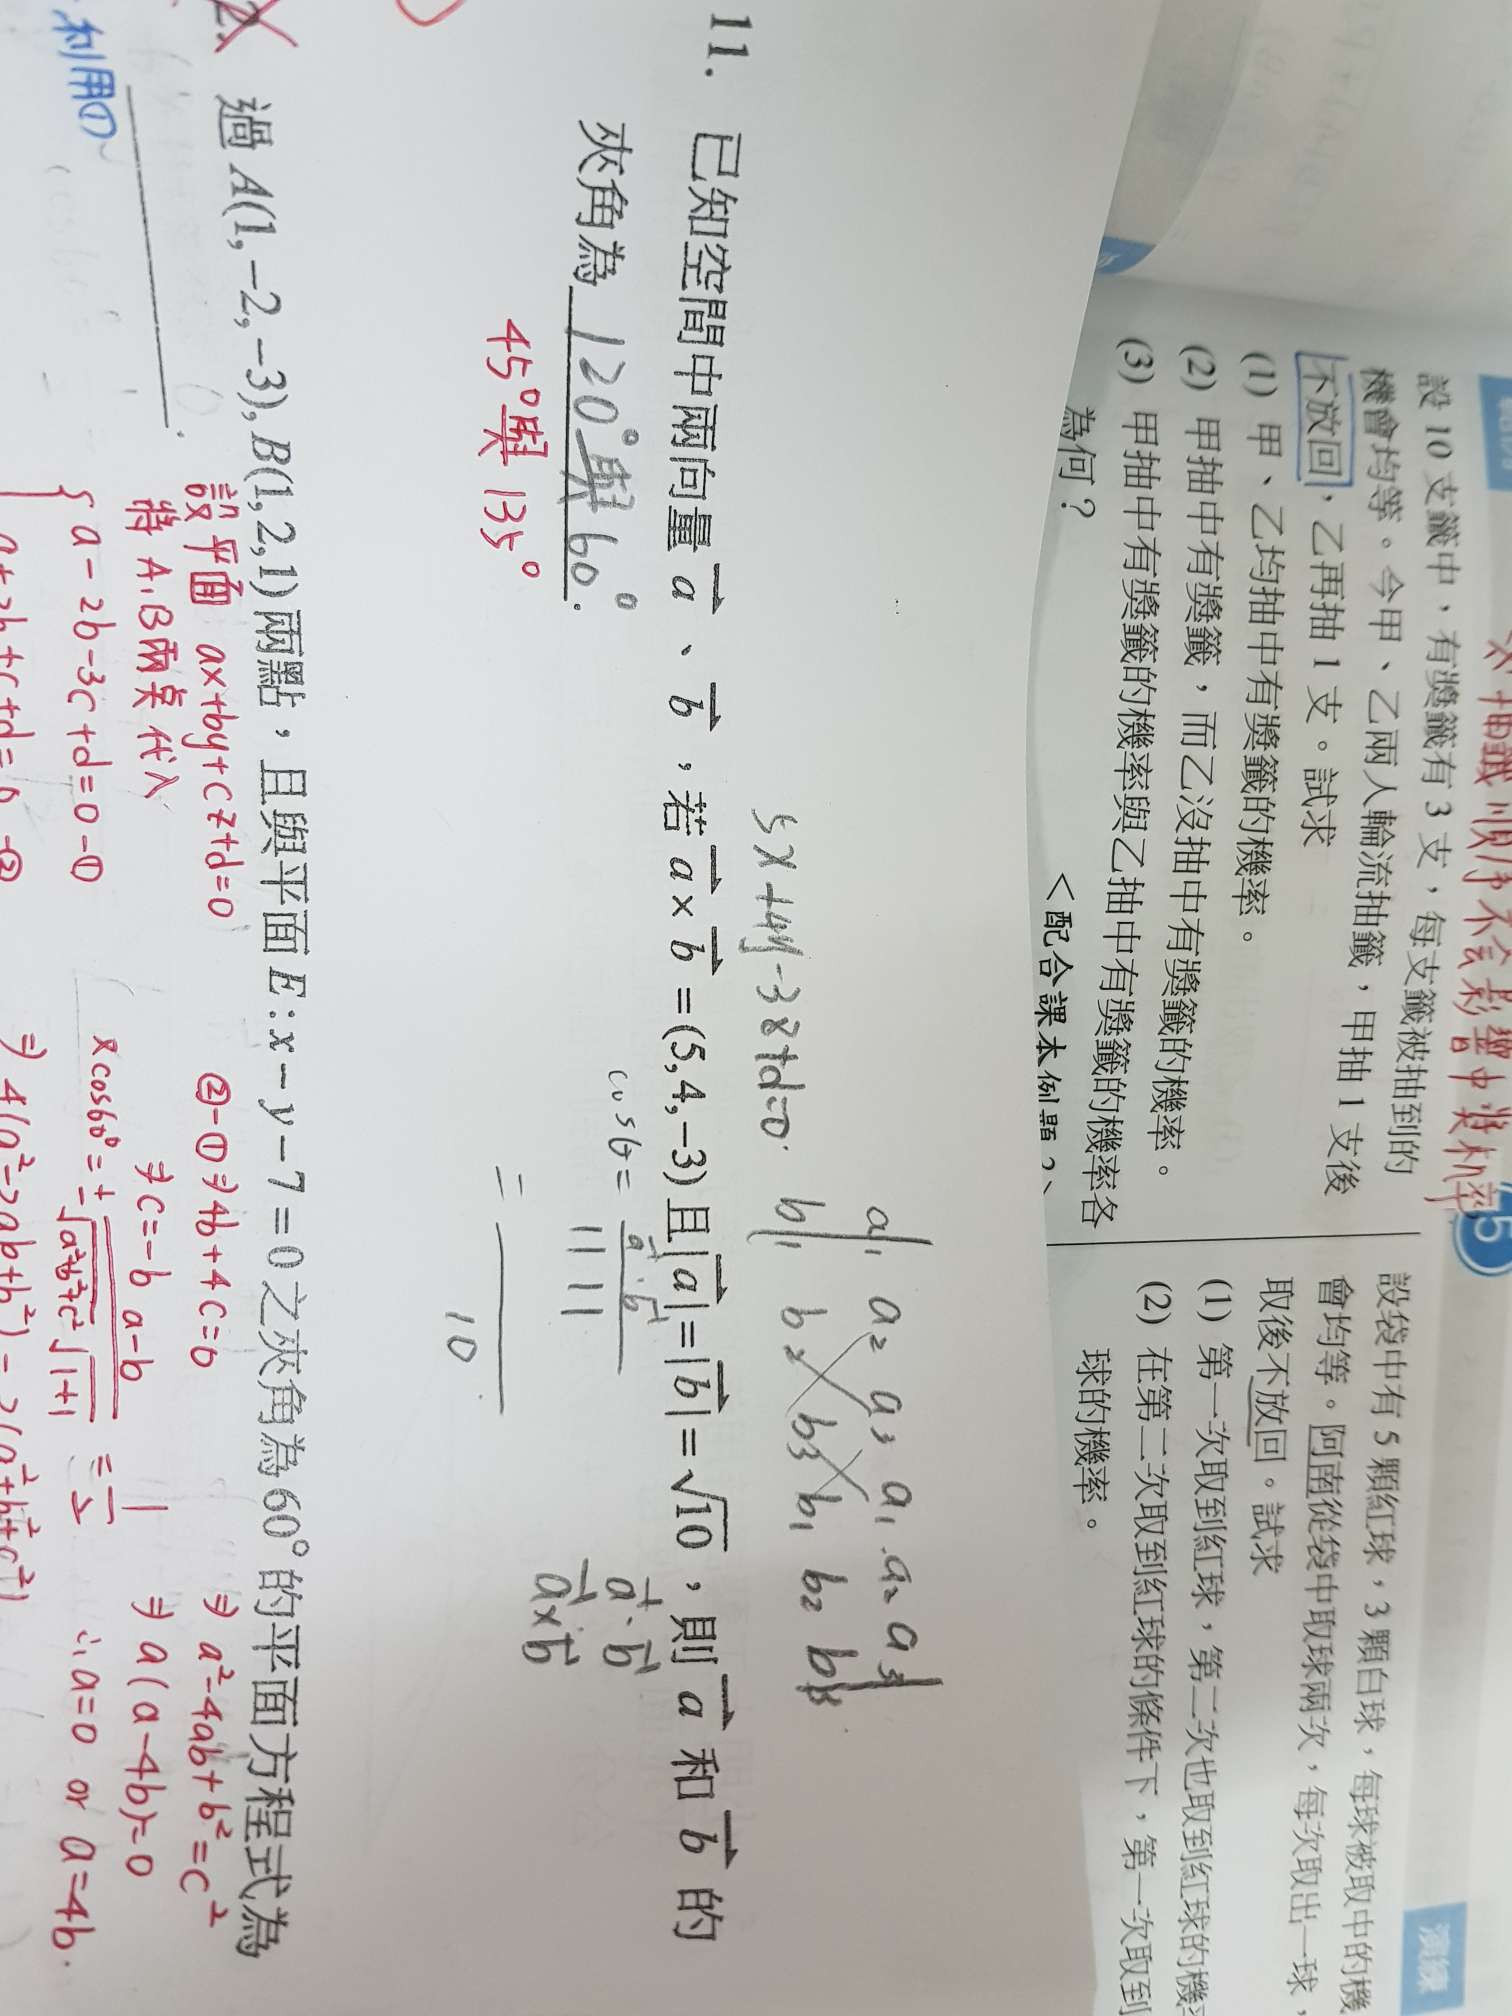 ※抽籤順序不會影響中獎機率
設 10 支籤中，有獎籤有 3 支，每支籤被抽到的
機會均等。今甲、乙兩人輪流抽籤，甲抽 1 支後
不放回，乙再抽 1 支。試求
(1) 甲、乙均抽中有獎籤的機率。
(2) 甲抽中有獎籤，而乙沒抽中有獎籤的機率。
(3) 甲抽中有獎籤的機率與乙抽中有獎籤的機率各
為何？
<配合課本例題2>
5
設袋中有 5 顆紅球，3 顆白球，每球被取中的機
會均等。阿南從袋中取球兩次，每次取出一球，
取後不放回。試求
(1) 第一次取到紅球，第二次也取到紅球的機率
(2) 在第二次取到紅球的條件下，第一次取到
球的機率。
演練
a₁ a₂ a₃ a₁ a₂ a₃
b₁ b₂ b₃ b₁ b₂ b₃
5x+4y-3z+d=0
11. 已知空間中兩向量 a、b，若 a×b=(5,4,−3) 且 |a|=|b|=√10，則 a 和 b 的
夾角為 120°與60°.
45°與 135°
cosθ= a·b / | | | |
= / 10
a·b
a×b
過 A(1,−2,−3), B(1,2,1) 兩點，且與平面 E:x−y−7=0 之夾角為 60° 的平面方程式為
設平面 ax+by+cz+d=0
將 A,B兩點代入
{ a-2b-3c+d=0 -①
a+2b+c+d=0 -②
②-①⇒4b+4c=0
⇒c=-b
又cos60°=± a-b / √a²+b²+c² √1+1 = 1/2
⇒ 4(a²-2ab+b²)=2(a²+b²+c²)
⇒ a²-4ab+b²=c²
⇒ a(a-4b)=0
∴a=0 or a=4b.
利用①